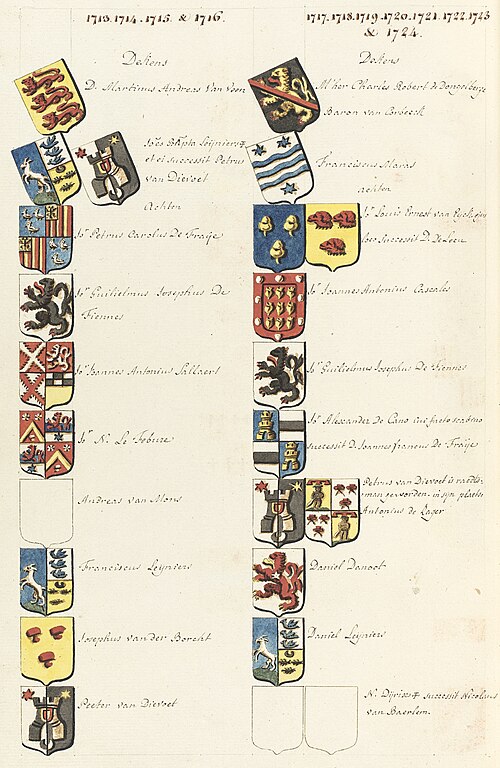 1713. 1714. 1715. & 1716.
Dekens
D. Martinus Andreas Van Veen
Jo.es Bapta Leyniers
et ei successit Petrus
van Dievoet
Achten
Jo.r Petrus Carolus De Fraije
Jo.r Guilielmus Josephus De
Fiennes
Jo.r Joannes Antonius Sallaert
Jo.r N. Le Febure
Andreas van Mons
Franciscus Leyniers
Josephus vander Borcht
Peeter van Dievoet
1717. 1718. 1719. 1720. 1721. 1722. 1723
& 1724.
Dekens
Charles Robert de
Baron van
Franciscus Maras
achten
Jo.r Louis Ernest van
successit D. De Leeu
Jo.r Joannes Antonius Cascales
Jo.r Guilielmus Josephus De Fiennes
Jo.r Alexander de Cano
successit D. Joannes De Fraije
Petrus van Dievoet is
man geworden. in sijn plaets
Antonius de Lager
Daniel Danoot
Daniel Leyniers
N. successit Nicolaus
van Baerlem.